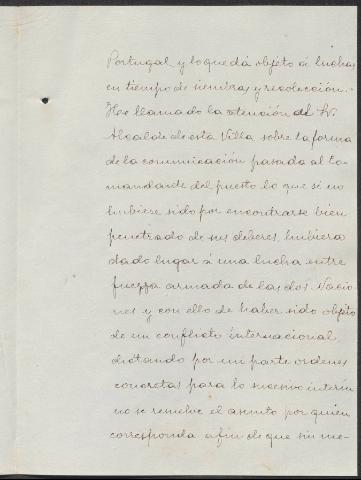 Portugal y lo que dá objeto á luchas
en tiempo de siembras y recolección.-
He llamado la atención del Sr.
Alcalde de esta Villa sobre la forma
de la comunicación pasada al Co-
mandante del puesto lo que si no
hubiere sido por encontrarse bien
penetrado de sus deberes, hubiera
dado lugar á una lucha entre
fuerza armada de las dos Nacio-
nes y con ello de haber sido objeto
de un conflicto internacional
dictando por mi parte ordenes
concretas para lo sucesivo interin
no se resuelve el asunto por quien
corresponda a fin de que sin me-